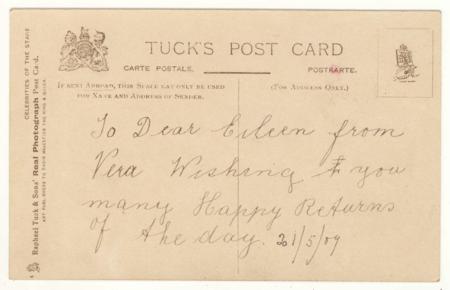 TUCK'S POST CARD
CARTE POSTALE.
POSTKARTE.
IF SENT ABROAD, THIS SPACE MAY ONLY BE USED
FOR NAME AND ADDRESS OF SENDER.
(FOR ADDRESS ONLY.)
To Dear Eileen from
Vera Wishing you
many Happy Returns
of the day. 21/5/09
CELEBRITIES OF THE STAGE
Raphael Tuck & Sons' Real Photograph Post Card.
ART PUBLISHERS TO THEIR MAJESTIES THE KING & QUEEN.